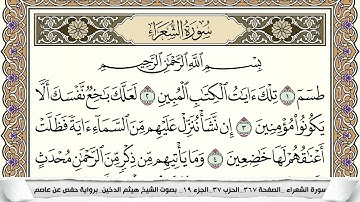 سُورَةُ الشُّعَرَاءِ
بِسْمِ اللَّهِ الرَّحْمَٰنِ الرَّحِيمِ
طسٓمٓ ١ تِلْكَ ءَايَٰتُ الْكِتَٰبِ الْمُبِينِ ٢ لَعَلَّكَ بَٰخِعٌ نَّفْسَكَ أَلَّا
يَكُونُوا۟ مُؤْمِنِينَ ٣ إِن نَّشَأْ نُنَزِّلْ عَلَيْهِم مِّنَ السَّمَآءِ ءَايَةً فَظَلَّتْ
أَعْنَٰقُهُمْ لَهَا خَٰضِعِينَ ٤ وَمَا يَأْتِيهِم مِّن ذِكْرٍ مِّنَ الرَّحْمَٰنِ مُحْدَثٍ
سورة الشعراء _الصفحة ٣٦٧_ الحزب ٣٧_ الجزء ١٩ _ بصوت الشيخ هيثم الدخين برواية حفص عن عاصم